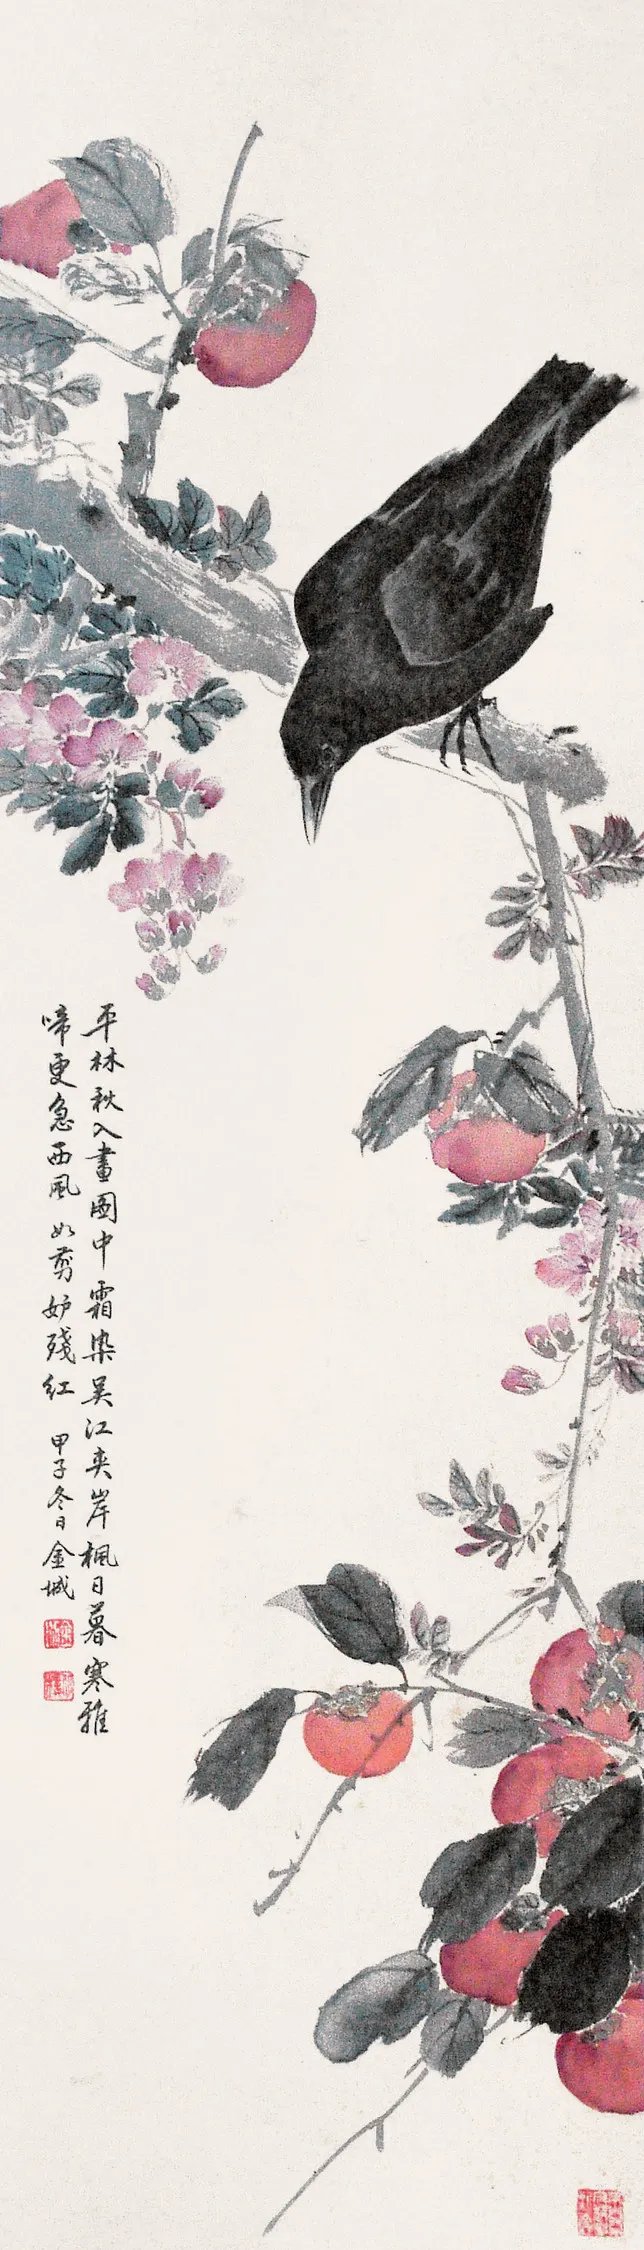 平林秋入畫圖中霜染吳江夾岸楓日暮寒雅
啼更急西風如剪妒殘紅 甲子冬日金城